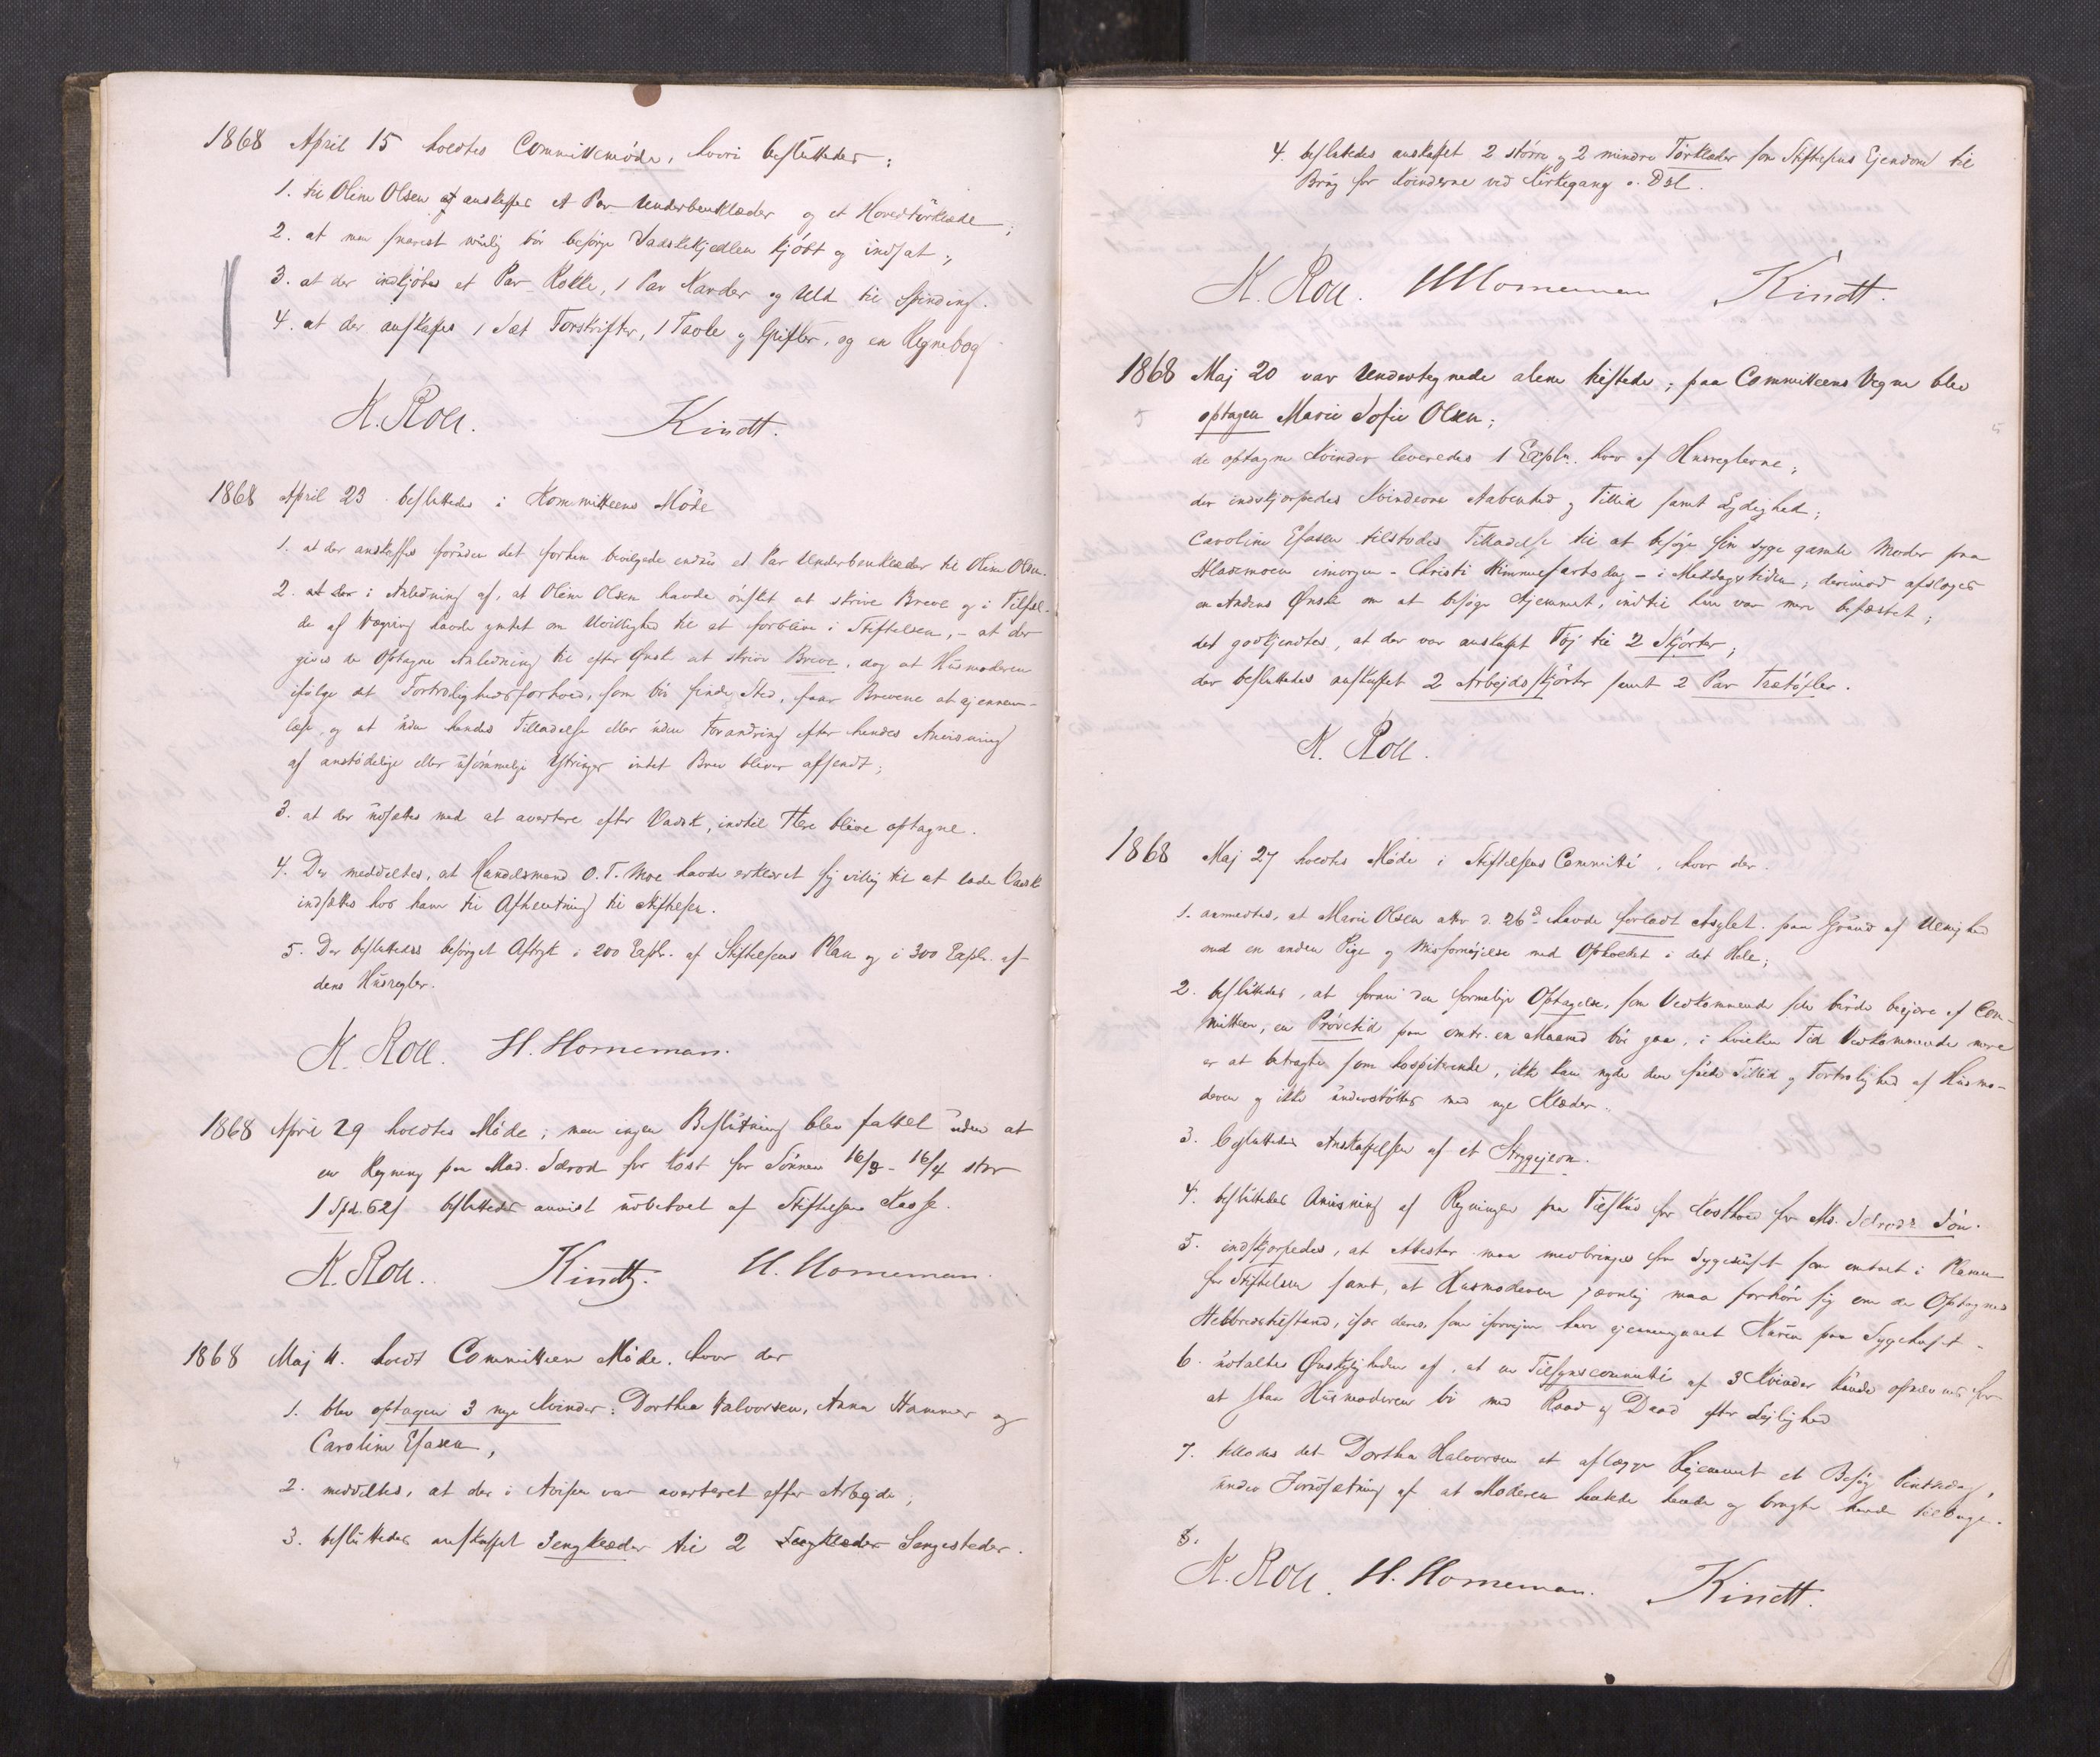 1868 April 15 holdtes Committemöde, hvori besluttedes:
1. til Oline Olsen at anskaffes et Par Underbenklæder og et Hovedtörklæde;
2. at man snarest mulig bör besörge Vadskekjedlen kjöbt og indsat;
3. at der indkjöbes et Par Rokke, 1 Par Karder og Uld til Spinding.
4. at der anskaffes 1 Sæt Forskrifter, 1 Tavle og Grifler, og en Regnebog
K. Roll. Kindt.
1868 April 23 besluttedes i Kommitteens Möde
1. at der anskaffes foruden det forhen bevilgede endnu et Par Underbenklæder til Oline Olsen.
2. at der i Anledning af, at Oline Olsen havde önsket at skrive Breve og i Tilfæl-
de af Vægring havde ymtet om Uvillighed til at forblive i Stiftelsen, - at der
gives de Optagne Anledning til efter Önske at skrive Breve, dog at Husmoderen
ifölge det Fortrolighedsforhold, som bör finde Sted, faar Brevene at gjennem-
læse, og at uden hendes Tilladelse eller uden Forandring efter hendes Anvisning
af anstödelige eller usömmelige Ytringer intet Brev bliver afsendt;
3. at der udsættes med at avertere efter Vadsk, indtil Flere blive optagne.
4. Der meddeltes, at Handelsmand O. T. Moe havde erklæret sig villig til at lade Vadsk
indsættes hos ham til Afhentning til Stiftelsen.
5. Der besluttedes besörget Aftryk i 200 Explr. af Stiftelsens Plan og i 300 Explr. af
dens Husregler.
K. Roll. H. Horneman.
1868 April 29 holdtes Möde; men ingen Beslutning blev fattet uden at
en Regning fra Mad. Selrod for Kost for Sönnen 16/3 - 16/4 stor
1 Spd. 62 s besluttedes anvist udbetalt af Stiftelsens Kasse.
K. Roll. Kindt. H. Horneman.
1868 Maj 4. holdt Committeen Möde, hvor der
1. blev optagen 3 nye Kvinder: Dorthea Halvorsen, Anna Hammer og
Caroline Esasen,
2. meddeltes, at der i Avisen var averteret efter Arbejde;
3. besluttedes anskaffet Sengklæder til 2 Sengklæder Sengesteder.
4. besluttedes anskaffet 2 större og 2 mindre Törklæder som Stiftelsens Ejendom til
Brug for Kvinderne ved Kirkegang o. Dsl.
K. Roll. H Horneman Kindt.
1868 Maj 20 var Undertegnede alene tilstede; paa Committeens Vegne blev
optagen Marie Sofie Olsen;
de optagne Kvinder leveredes 1 Explr. hver af Husreglerne;
der indskjærpedes Kvinderne Aabenhed og Tillid samt Lydighed;
Caroline Esasen tilstodes Tilladelse til at besöge sin syge gamle Moder paa
Hlademoen imorgen - Christi Himmelfartsdag - i Middagstiden; derimod afsloges
en Andens Ønske om at besöge Hjemmet, indtil hun var mere befæstet;
det godkjendtes, at der var anskaffet Töj til 2 Skjörter;
der besluttedes anskaffet 2 Arbejdsskjörter samt 2 Par Trætöfler.
K. Roll.
1868 Maj 27 holdtes Möde i Stiftelsens Committé, hvor der
1. anmeldtes, at Marie Olsen alt d. 26d havde forladt Asylet paa Grund af Uenighed
med en anden Pige og Misfornöjelse med Opholdet i det Hele;
2. besluttedes, at forud den formelige Optagelse, som Vedkommende selv burde begjære af Com-
mitteen, en Prövetid paa omtr. en Maaned bör gaa, i hvilken Tid Vedkommende mere
er at betragte som hospiterende, ikke kan nyde den fulde Tillid og Fortrolighed af Husmo-
deren og ikke understöttes med nye Klæder.
3. besluttedes Anskaffelsen af et Strygejern.
4. besluttedes Anvisning af Regninger paa Tilskud for Kosthold for Md. Selrods Sön.
5. indskjærpedes, at Attester maa medbringes fra Sygehuset som omtalt i Planen
for Stiftelsen samt, at Husmoderen jævnlig maa forhöre sig om de Optagnes
Helbredstilstand, især deres, som iforvejen have gjennemgaaet Kuren paa Sygehuset.
6. udtaltes Önskeligheden af, at en Tilsynscommité af 3 Kvinder kunde opnævnes for
at staa Husmoderen bi med Raad og Daad efter Lejlighed
7. tillodes det Dorthea Halvorsen at aflægge Hjemmet et Besög Pintsedag,
under Forudsætning af at Moderen hentede hende og bragte hende tilbage.
8.
K. Roll. H. Horneman. Kindt.